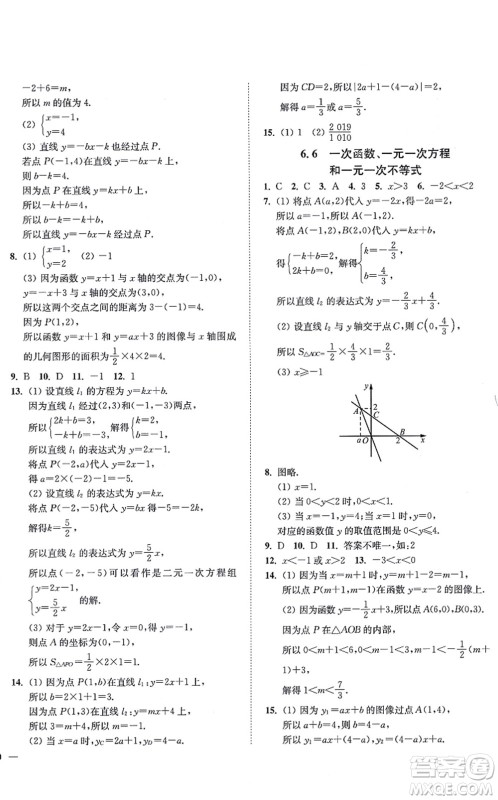 −2+6=m,
所以 m 的值为 4.
(2) {x=−1, y=4
(3) 直线 y=−bx−k 也经过点 P.
若点 P(−1,4)在直线 y=−bx−k 上,
则 b−k=4.
因为点 P(−1,4)在直线 y=kx+b 上,
所以−k+b=4.
所以直线 y=−bx−k 也经过点 P.
8. (1) {x=1, y=2 (2) −1
(3) 因为函数 y=x+1 与 x 轴的交点为(−1,0),
y=−x+3 与 x 轴的交点为(3,0),
所以这两个交点之间的距离为 3−(−1)=4.
因为 P(1,2),
所以函数 y=x+1 和 y=−x+3 的图像与 x 轴围成
的几何图形的面积为 1/2×4×2=4.
9. B 10. D 11. −1 12. 1
13. (1) 设直线 l₁ 的方程为 y=kx+b.
因为直线 l₁ 经过(2,3)和(−1,−3)两点,
所以{2k+b=3, −k+b=−3, 解得{k=2, b=−1.
所以直线 l₁ 的表达式为 y=2x−1.
将点 P(−2,a)代入 y=2x−1,
得 a=−5.
(2) 设直线 l₂ 的表达式为 y=kx.
将点 P(−2,−5)代入 y=kx,
解得k=5/2,
所以直线 l₂ 的表达式为 y=5/2x.
所以点(−2,−5)可以看作是二元一次方程组
{y=2x−1, y=5/2x 的解.
(3) 对于 y=2x−1,令 x=0,解得 y=−1.
则点 A 的坐标为(0,−1).
所以 S△APO=1/2×2×1=1.
14. (1) 因为点 P(1,b)在直线 l₁:y=2x+1 上,
所以 b=2×1+1=3.
因为点 P(1,3)在直线 l₂:y=mx+4 上,
所以 3=m+4,所以 m=−1.
(2) 当 x=a 时,yC=2a+1,yD=4−a.
因为 CD=2,所以|2a+1−(4−a)|=2,
解得 a=1/3 或 a=5/3.
15. (1) 1 (2) 2 019/1 010
6.6 一次函数、一元一次方程
和一元一次不等式
1. C 2. C 3. A 4. 3 5. x>3 6. −2<x<2
7. (1) 将点 A(a,2)代入 y=−2x,得−2a=2,
解得 a=−1.
将点 A(−1,2),B(2,0)代入 y=kx+b,
得{−k+b=2, 2k+b=0, 解得{k=−2/3, b=4/3.
所以直线 l₂ 的表达式为 y=−2/3x+4/3.
(2) 设直线 l₂ 与 y 轴交于点 C,则 C(0,4/3),
所以 S△AOC=1/2×4/3×1=2/3.
(3) x≥−1.
y
A
2
C
B
a
O
2
x
8. 图略.
(1) x=1.
(2) 当 0<y<2 时,0<x<1.
(3) 当 x=−1 时,y=4;当 x=1 时,y=0.
对应的函数值 y 的取值范围是 0<y≤4.
9. D 10. D 11. 答案不唯一,如:2
12. x<−1 或 x>2 13. −3<x<0
14. (1) 因为当 x=m+1 时,y=m+1−2=m−1,
所以 P(m+1,m−1)在函数 y=x−2 的图像上.
(2) 因为函数 y=−1/2x+3,
所以 A(6,0),B(0,3).
因为点 P 在△AOB 的内部,
所以 0<m+1<6,0<m−1<3,
m−1<−1/2(m+1)+3,
解得 1<m<7/3.
15. (1) 因为 y₁=ax+b 的图像过点(1,4),
所以 a+b=4,所以 b=4−a,
所以 y₁=ax+4−a.